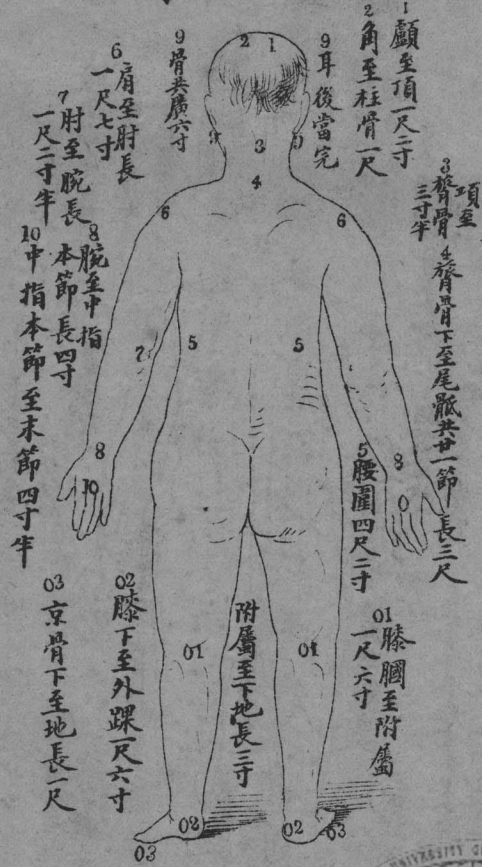 1
顱至頂一尺二寸
2
角至柱骨一尺
9
耳後當完
9
骨共廣六寸
6
肩至肘長
一尺七寸
7
肘至腕長
一尺二寸半
8
腕至中指
本節長四寸
10
中指本節至末節四寸半
項至
3
膂骨
三寸半
4
膂骨下至尾骶共廿一節長三尺
5
腰圍四尺二寸
01
膝膕至附屬
一尺六寸
附屬至下地長三寸
02
膝下至外踝一尺六寸
03
京骨下至地長一尺
2 1
9 3 9
4
6 6
7 5 5
8 8
10 0
01 01
02 02 03
03
UNIVERSITY